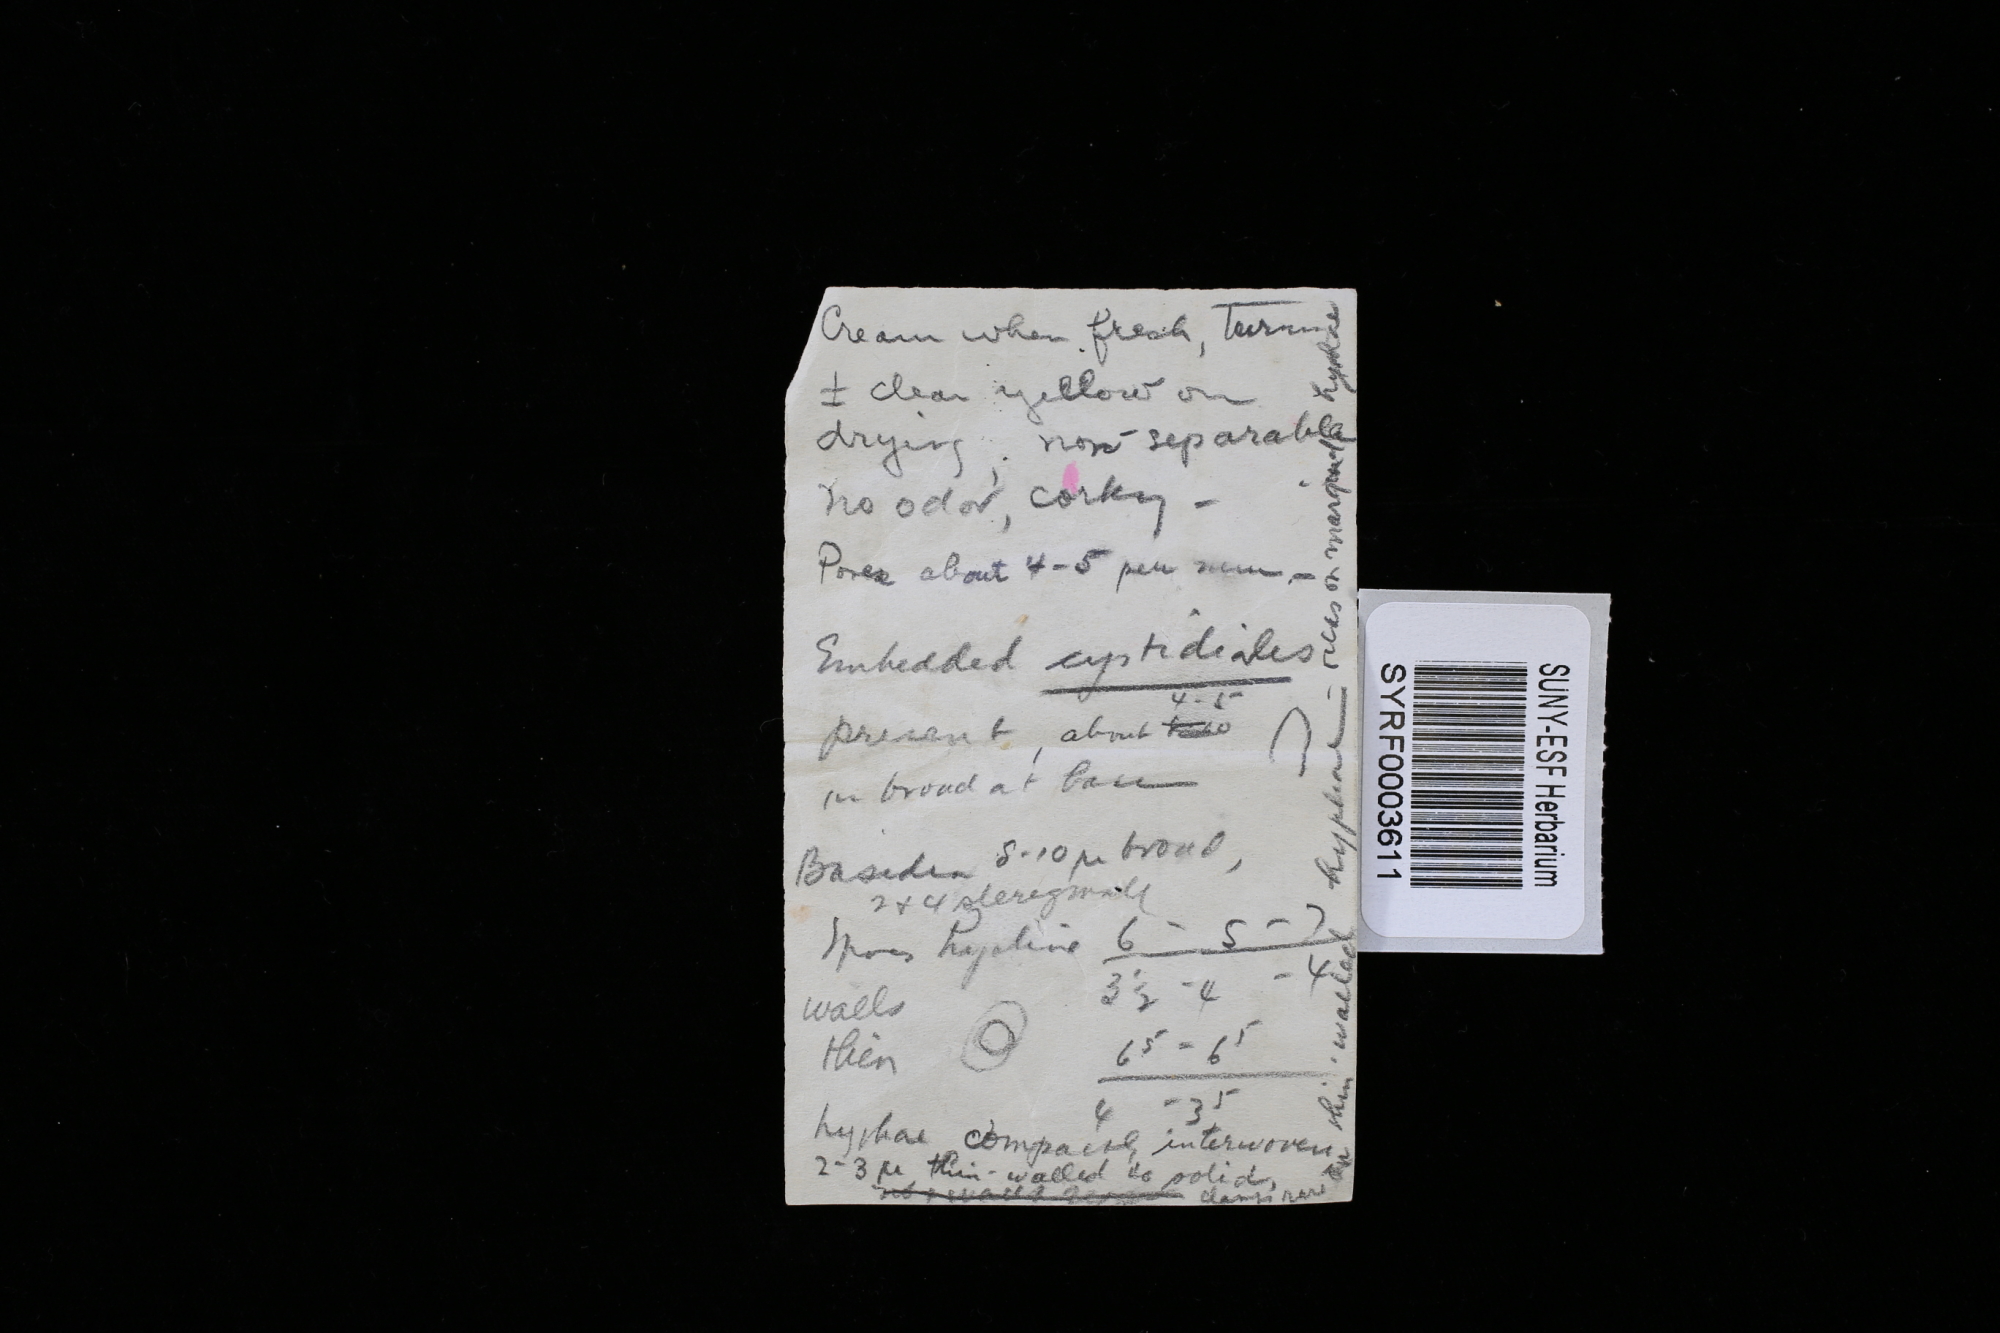 Cream when fresh, turns
± clear yellow on
drying; non-separable
no odor, corky -
Pores about 4-5 per mm. -
Embedded cystidioles
present, about 4-5
m broad at base
Basidia 8-10 µ broad,
2 + 4 sterigmate
Spores hyaline 6 - 5 - 7
3½ - 4 - 4
walls
thin
6⁵ - 6⁵
4 - 3⁵
hyphae compact, interwoven
2-3 µ thin-walled to solid,
clamps rare on
thin-walled hyphae — rear on marginal hyphae
SUNY-ESF Herbarium
SYRF0003611